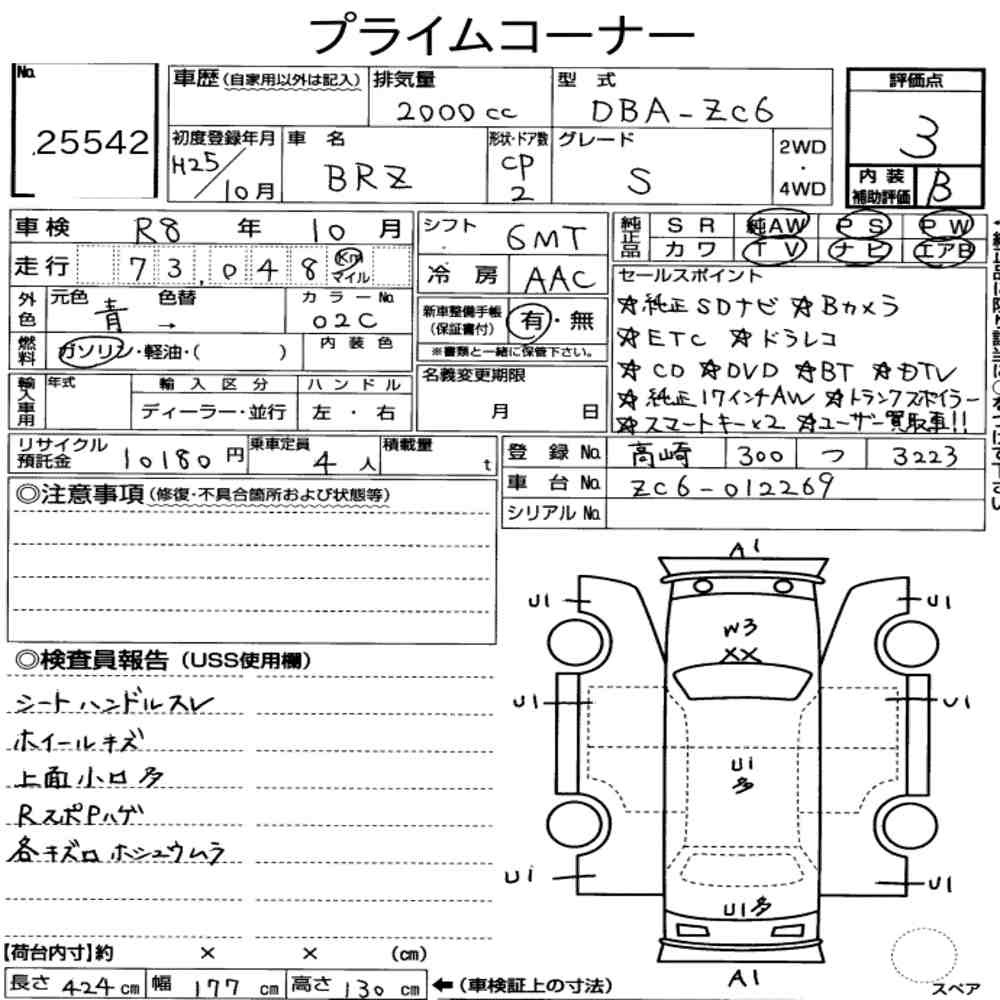 プライムコーナー
No. 25542
車歴(自家用以外は記入) 排気量 2000cc 型式 DBA-ZC6 評価点 3
初度登録年月 H25/10月 車名 BRZ 形状・ドア数 CP 2 グレード S 2WD・4WD 内装補助評価 B
車検 R8年10月 シフト 6MT 純正品 SR 純AW PS PW
走行 73,048 Km マイル 冷房 AAC カワ TV ナビ エアB
外色 元色 青 色替 → カラーNo. 02C 新車整備手帳(保証書付) 有・無 セールスポイント
☆純正SDナビ ☆Bカメラ
燃料 ガソリン・軽油・( ) 内装色 ※書類と一緒に保管下さい。 ☆ETC ☆ドラレコ
輸入車用 年式 輸入区分 ハンドル 名義変更期限 ☆CD ☆DVD ☆BT ☆DTV
ディーラー・並行 左・右 月 日 ☆純正17インチAW ☆トランクスポイラー
☆スマートキー×2 ☆ユーザー買取車!!
リサイクル預託金 10180円 乗車定員 4人 積載量 t 登録No. 高崎 300 つ 3223
◎注意事項(修復・不具合箇所および状態等) 車台No. ZC6-012269
シリアルNo.
A1
U1 U1
W3
XX
U1 U1
U1
多
U1 U1
U1多
A1
スペア
◎検査員報告(USS使用欄)
シートハンドルスレ
ホイールキズ
上面小ロ多
RスポPハゲ
各キズロホシュウムラ
【荷台内寸】約 × × (cm)
長さ 424cm 幅 177cm 高さ 130cm ←(車検証上の寸法)